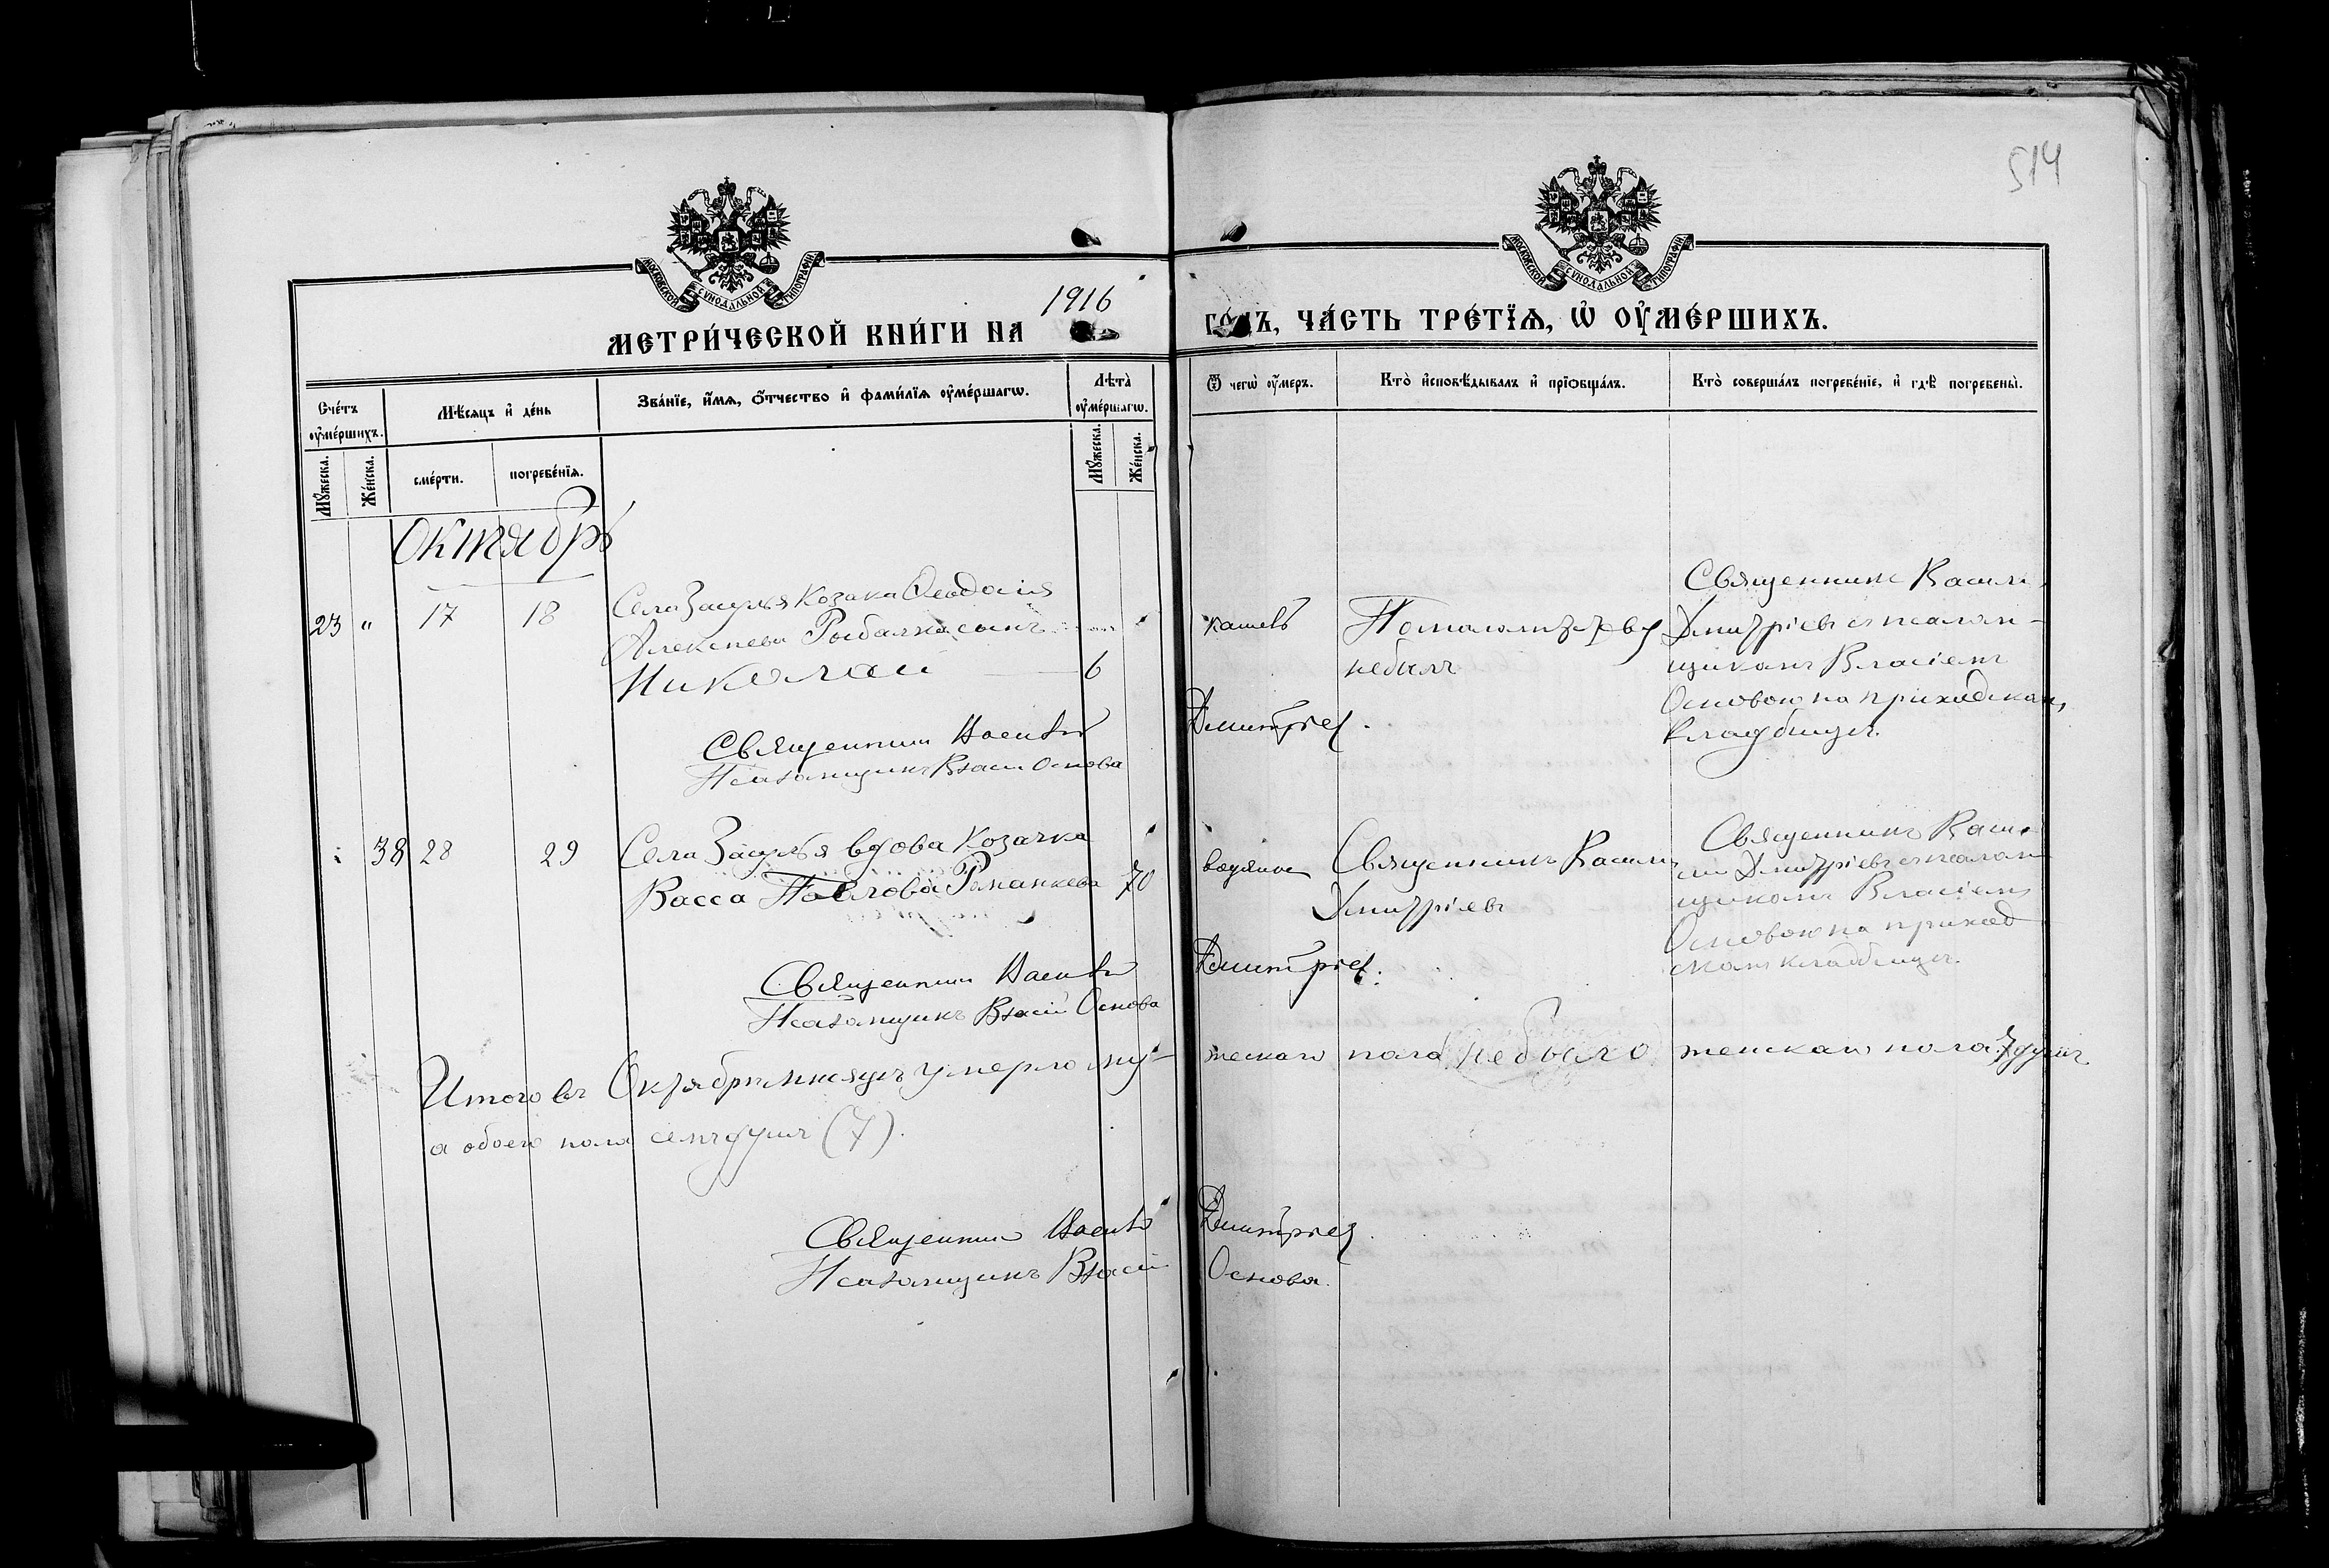 514
МОСКОВСКОЙ СѴНОДАЛЬНОЙ ТИПОГРАФІИ
МОСКОВСКОЙ СѴНОДАЛЬНОЙ ТИПОГРАФІИ
МЕТРИ́ЧЕСКОЙ КНИ́ГИ НА 1916 ГОДЪ, ЧА́СТЬ ТРЕ́ТЇѦ, Ѡ҆ ОУ҆МЕ́РШИХЪ.
Сче́тъ оу҆ме́ршихъ.
Мꙋ́жеска.
Же́нска.
Мѣ́сѧцъ и҆ де́нь
сме́рти.
погребе́нїѧ.
Зва́нїе, и҆́мѧ, ѻ҆́тчество и҆ фами́лїѧ оу҆ме́ршагѡ.
Лѣта̀ оу҆ме́ршагѡ.
Мꙋ́жеска.
Же́нска.
Ѿ чегѡ̀ оу҆́меръ.
Кто̀ и҆сповѣ́дывалъ и҆ прїѡбща́лъ.
Кто̀ соверша́лъ погребе́нїе, и҆ гдѣ̀ погребены̀.
Октябрь
23 " 17 18
Села Засулья Козака Ѳеодосія
Алексѣева Рыбалка сынъ
Николай 6
кашель
По малолѣтству
не былъ
Священникъ Васили
Дмитріевъ съ псалом-
щикомъ Власіемъ
Основою на приходском
кладбищѣ.
Священникъ Василій Дмитріев.
Псаломщикъ Власій Основа
38 28 29
Села Засулья вдова Козачка
Васса Павлова Романкова 70
водянка
Священникъ Васили
Дмитріевъ
Священникъ Васи
лій Дмитріевъ съ псалом
щикомъ Власіемъ
Основою на приход
скомъ кладбищѣ.
Священникъ Василій Дмитріев.
Псаломщикъ Власій Основа
Итого въ Октябрѣ мѣсяцѣ умерло му- жескаго пола не было женскаго пола 7 душъ
а обоего пола семь душъ (7).
Священникъ Василій Дмитріев.
Псаломщикъ Власій Основа.